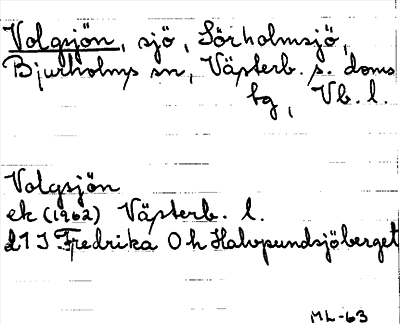 Volgsjön, sjö, Sörholmsjö,
Bjurholms sn, Västerb. s. doms
tg, Vb. l.
Volgsjön
ek (1962) Västerb. l.
21 I Fredrika O h Halvpundsjöberget
ML-63